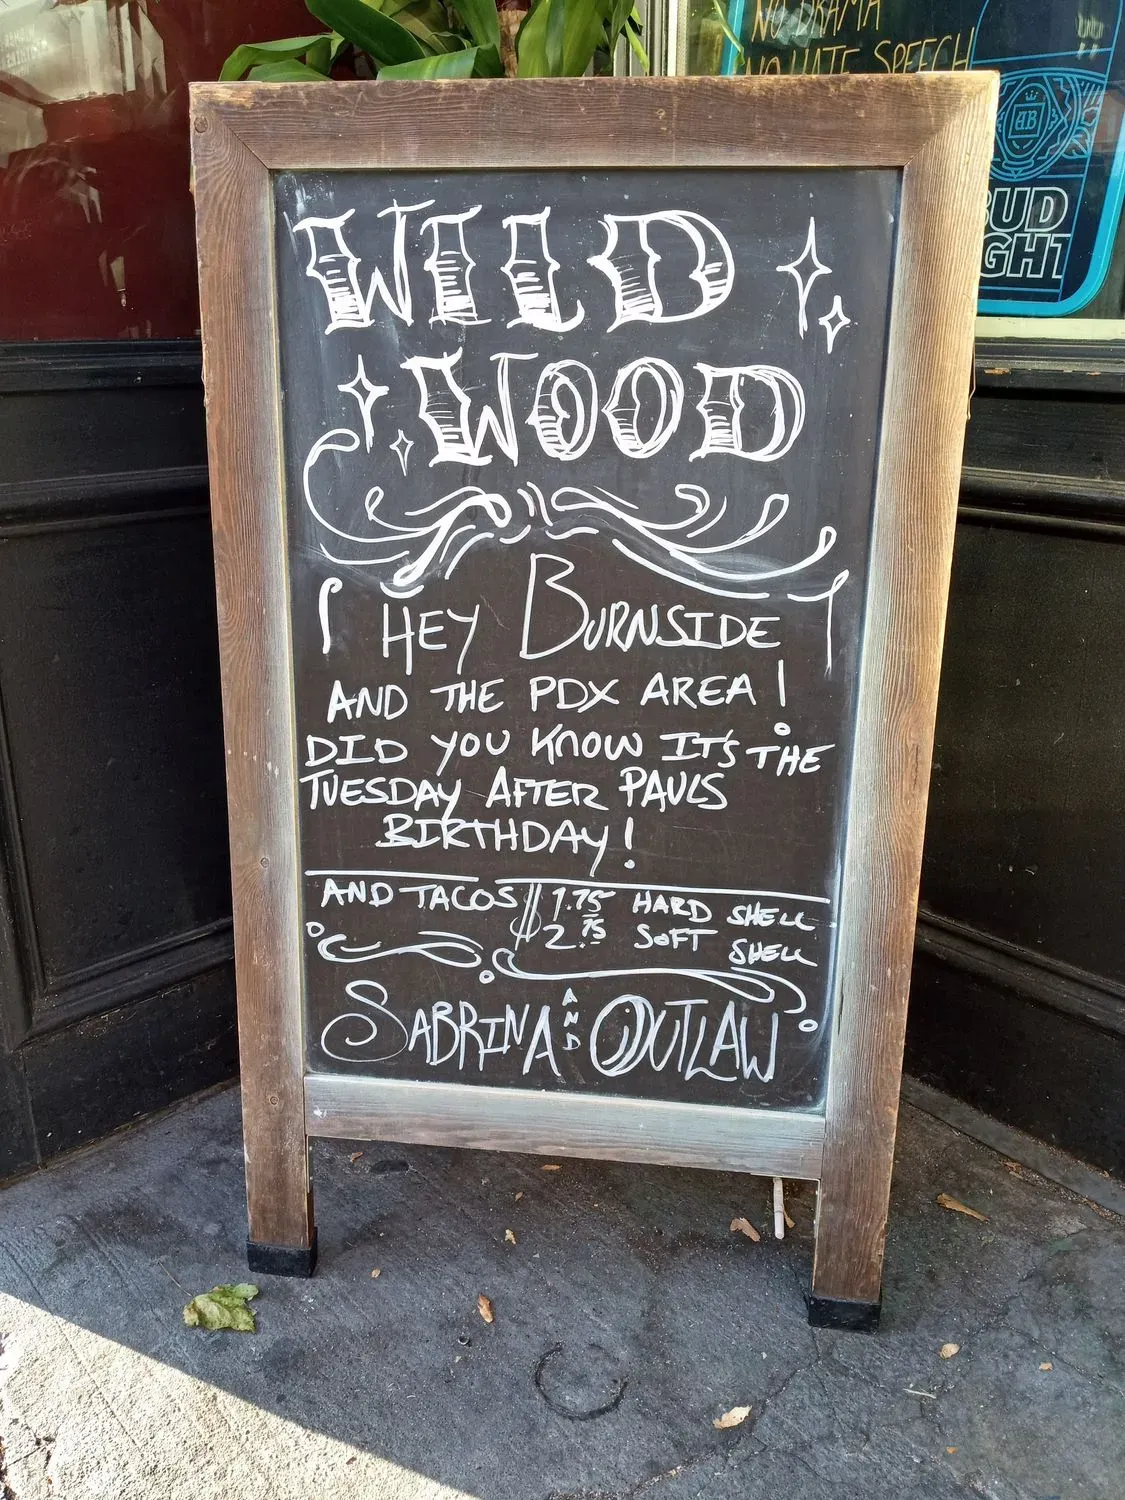 NO DRAMA
NO HATE SPEECH
AB
BUD
LIGHT
WILD
WOOD
HEY BURNSIDE
AND THE PDX AREA!
DID YOU KNOW IT'S THE
TUESDAY AFTER PAULS
BIRTHDAY!
AND TACOS $ 1.75 HARD SHELL
2.75 SOFT SHELL
SABRINA AND OUTLAW